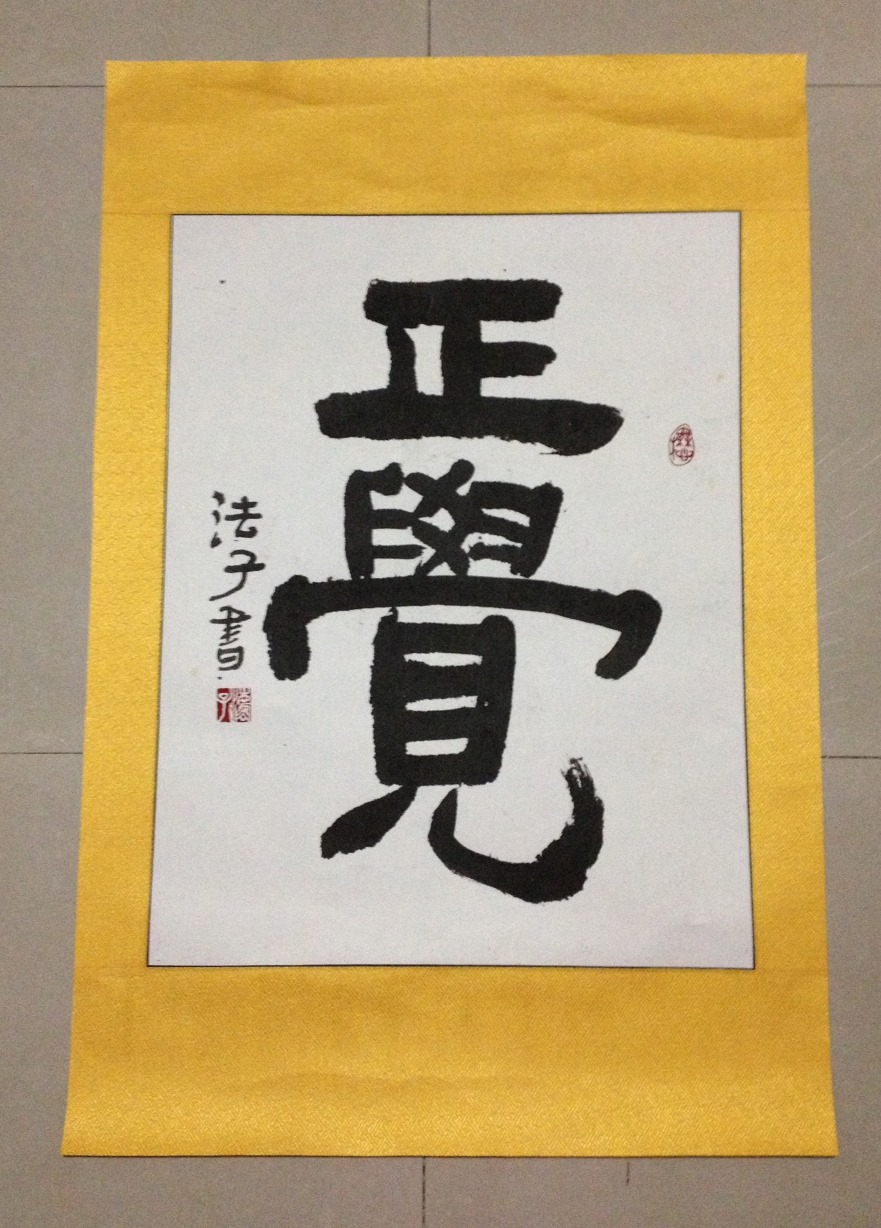 正覺
法子書